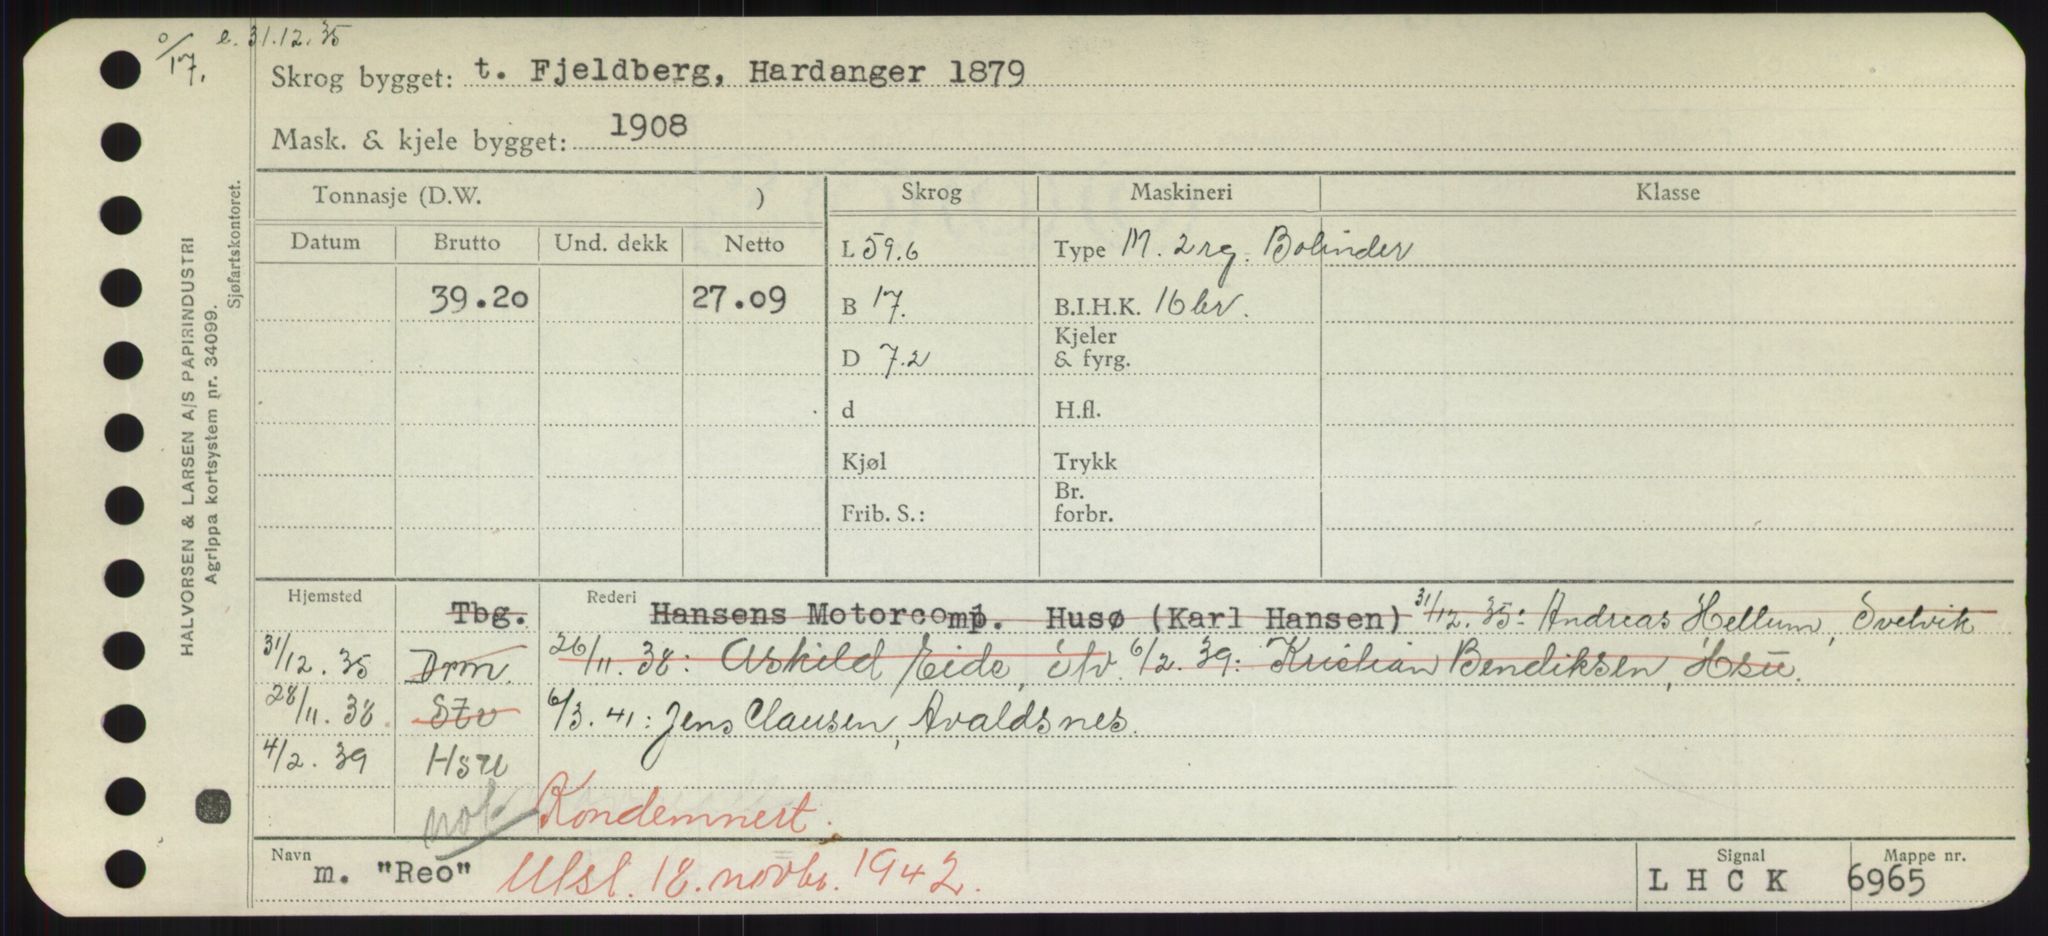 o/17. e. 31.12.35
Skrog bygget: t. Fjeldberg, Hardanger 1879
Mask. & kjele bygget: 1908
Tonnasje (D.W. ) Skrog Maskineri Klasse
Datum Brutto Und. dekk Netto L 59.6 Type M. 2 rg. Bolinder
39.20 27.09 B 17. B.I.H.K. 16 br.
D 7.2 Kjeler & fyrg.
d H.fl.
Kjøl Trykk
Frib. S.: Br. forbr.
Hjemsted Tbg. Rederi Hansens Motorcomp. Husø (Karl Hansen) 31/12.35: Andreas Hellum, Svelvik
31/12.35 Drm. 26/11.38: Askild Eide, 6/2.39: Kristian Bendiksen, Hsu.
28/11.38 Szv 6/3.41: Jens Clausen, Avaldsnes.
4/2.39 Hsu
not Kondemnert.
Navn m. "Reo" Utsl. 18. novbr. 1942. Signal L H C K Mappe nr. 6965
HALVORSEN & LARSEN A/S PAPIRINDUSTRI
Agrippa kortsystem nr. 34099.
Sjøfartskontoret.